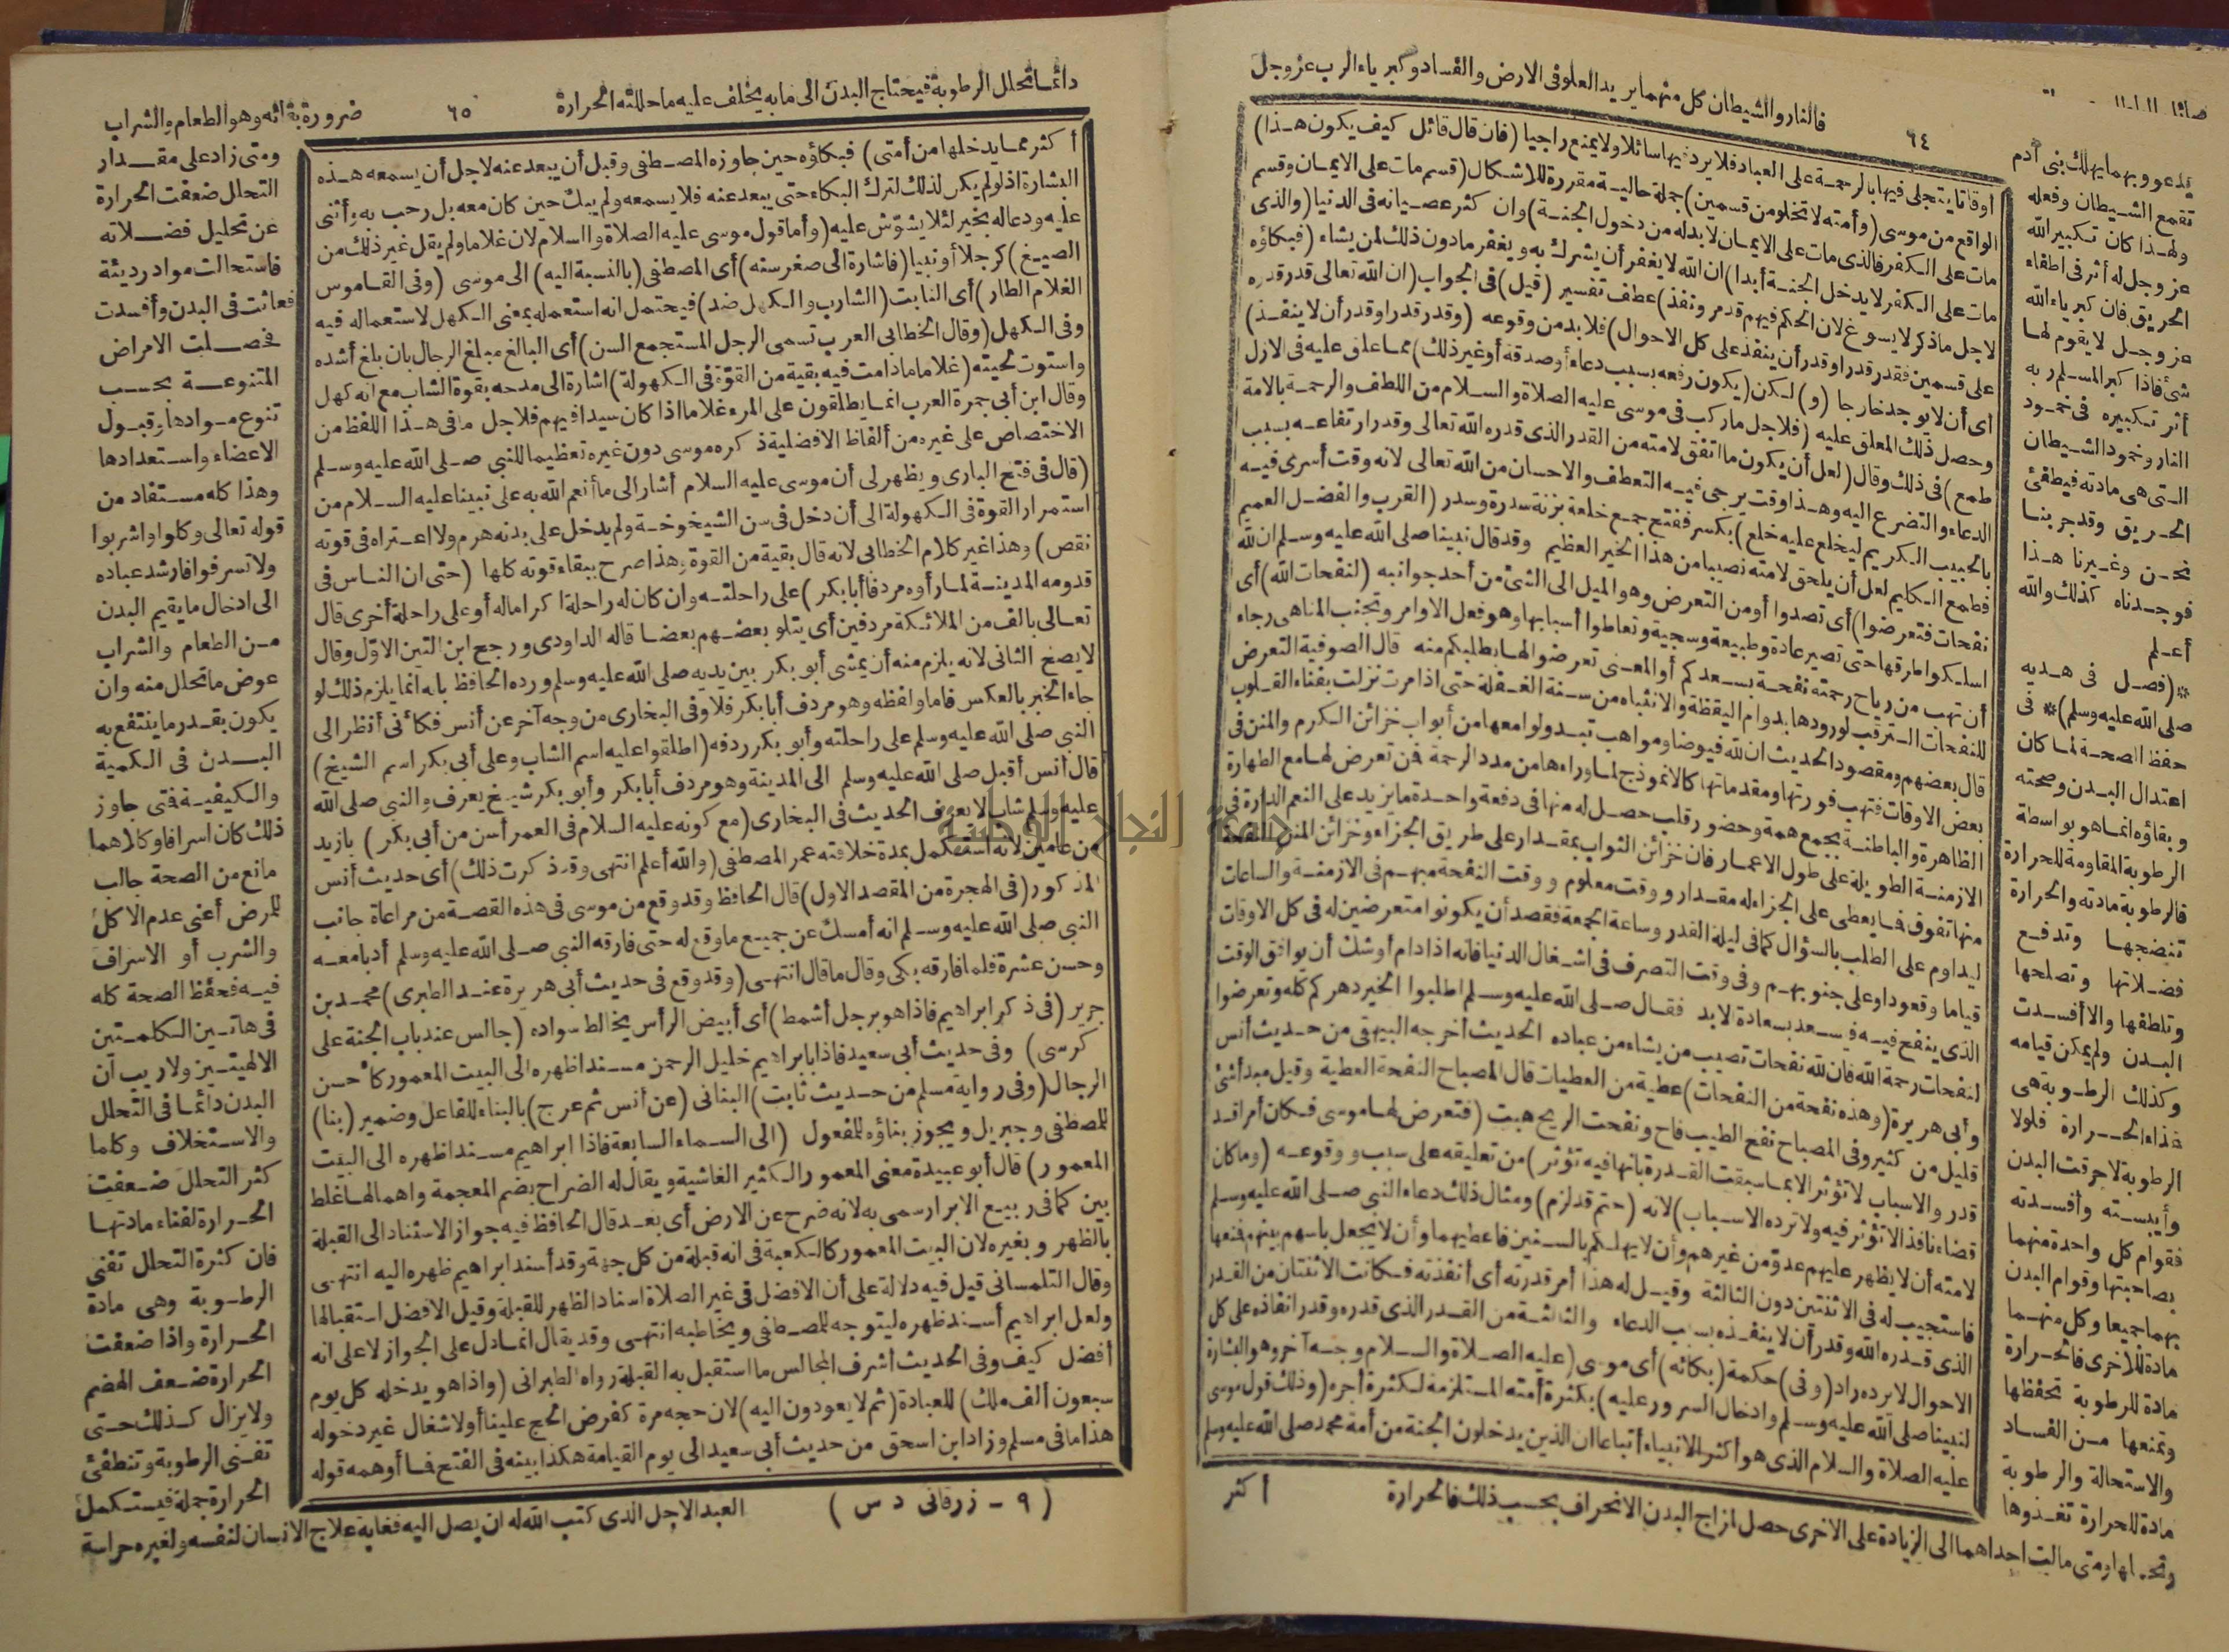 فالنار والشيطان كل منهما يريد العلو فى الارض والفساد وكبرياء الرب عز وجل
٦٤
يدعو وبهما يهلك بنى آدم
تقمع الشيطان وفعله
ولهذا كان تكبير الله
عز وجل له أثر فى اطفاء
الحريق فان كبرياء الله
عز وجل لا يقوم لها
شئ فاذا كبر المسلم ربه
أثر تكبيره فى خمود
النار وخمود الشيطان
التى هى مادته فيطفئ
الحريق وقد جربنا
نحن وغيرنا هذا
فوجدناه كذلك والله
أعلم
*(فصل فى هديه
صلى الله عليه وسلم)* فى
حفظ الصحة لما كان
اعتدال البدن وصحته
وبقاؤه انما هو بواسطة
الرطوبة المقاومة للحرارة
فالرطوبة مادته والحرارة
تنضجها وتدفع
فضلاتها وتصلحها
وتلطفها والا أفسدت
البدن ولم يمكن قيامه
وكذلك الرطوبة هى
غذاء الحرارة فلولا
الرطوبة لاحرقت البدن
وأيبسته وأفسدته
فقوام كل واحدة منهما
بصاحبتها وقوام البدن
بهما جميعا وكل منهما
مادة للاخرى فالحرارة
مادة للرطوبة تحفظها
وتمنعها من الفساد
والاستحالة والرطوبة
مادة للحرارة تغذوها
ومتى مالت احداهما الى الزيادة على الاخرى حصل لمزاج البدن الانحراف بحسب ذلك فالحرارة
أوقاتا يتجلى فيها بالرحمة على العباد فلا يرد فيها سائلا ولا يمنع راجيا (فان قال قائل كيف يكون هذا)
الواقع من موسى (وأمته لا تخلو من قسمين) جملة حالية مقررة للاشكال (قسم مات على الايمان وقسم
مات على الكفر فالذى مات على الايمان لا بد له من دخول الجنة) وان كثر عصيانه فى الدنيا (والذى
مات على الكفر لا يدخل الجنة أبدا) ان الله لا يغفر أن يشرك به ويغفر ما دون ذلك لمن يشاء (فبكاؤه
لاجل ما ذكر لا يسوغ لان الحكم فيهم قد مر ونفذ) عطف تفسير (قيل) فى الجواب (ان الله تعالى قدر قدره
على قسمين فقدر قدرا وقدر أن ينفذ على كل الاحوال) فلا بد من وقوعه (وقدر قدرا وقدر أن لا ينفذ)
أى أن لا يوجد خارجا (و) لكن (يكون رفعه بسبب دعاء أو صدقة أو غير ذلك) مما علق عليه فى الازل
وحصل ذلك المعلق عليه (فلاجل ما ركب فى موسى عليه الصلاة والسلام من اللطف والرحمة بالامة
طمع) فى ذلك وقال (لعل أن يكون ما اتفق لامته من القدر الذى قدره الله تعالى وقدر ارتفاعه بسبب
الدعاء والتضرع اليه وهذا وقت يرجى فيه التعطف والاحسان من الله تعالى لانه وقت أسرى فيه
بالحبيب الكريم ليخلع عليه خلع) بكسر ففتح جمع خلعة بزنة سدرة وسدر (القرب والفضل العميم
فطمع الكليم لعل أن يلحق لامته نصيبا من هذا الخير العظيم وقد قال نبينا صلى الله عليه وسلم ان لله
نفحات فتعرضوا) أى تصدوا أو من التعرض وهو الميل الى الشئ من أحد جوانبه (لنفحات الله) أى
اسلكوا طرقها حتى تصير عادة وطبيعة وسجية وتعاطوا أسبابها وهو فعل الاوامر وتجنب المناهى رجاء
أن تهب من رياح رحمته نفحة يسعدكم أو المعنى تعرضوا لها بطلبكم منه قال الصوفية التعرض
للنفحات الترقب لورودها بدوام اليقظة والانتباه من سنة الغفلة حتى اذا مرت نزلت بفناء القلوب
قال بعضهم ومقصود الحديث ان لله فيوضا ومواهب تبدو لوامعها من أبواب خزائن الكرم والمنن فى
بعض الاوقات فتهب فورتها ومقدماتها كالانموذج لما وراءها من مدد الرحمة فمن تعرض لها مع الطهارة
الظاهرة والباطنة بجمع همة وحضور قلب حصل له منها فى دفعة واحدة ما يزيد على النعم الدارة فى
الازمنة الطويلة على طول الاعمار فان خزائن الثواب بمقدار على طريق الجزاء وخزائن المنن النفحة
منها تفوق فما يعطى على الجزاء له مقدار ووقت معلوم ووقت النفحة مبهم فى الازمنة والساعات
ليداوم على الطلب بالسؤال كما فى ليلة القدر وساعة الجمعة فقصد أن يكونوا متعرضين له فى كل الاوقات
قياما وقعودا وعلى جنوبهم وفى وقت التصرف فى اشغال الدنيا فانه اذا دام أوشك أن يوافق الوقت
الذى ينفح فيه فيسعد بسعادة لابد فقال صلى الله عليه وسلم اطلبوا الخير دهركم كله وتعرضوا
لنفحات رحمة الله فان لله نفحات تصيب من يشاء من عباده الحديث أخرجه البيهقى من حديث أنس
وأبى هريرة (وهذه نفحة من النفحات) عطية من العطيات قال المصباح النفحة العطية وقيل مبدأ شئ
قليل من كثير وفى المصباح نفح الطيب فاح ونفحت الريح هبت (فتعرض لها موسى فكان أمرا قد
قدر والاسباب لا تؤثر الا بما سبقت القدرة بانها فيه تؤثر) من تعليقه على سبب ووقوعه (وما كان
قضاء نافذا لا تؤثر فيه ولا ترده الاسباب) لانه (حتم قد لزم) ومثال ذلك دعاء النبى صلى الله عليه وسلم
لامته أن لا يظهر عليهم عدوّ من غيرهم وأن لا يهلكهم بالسنين فاعطيهما وأن لا يجعل باسهم بينهم فمنعها
فاستجيب له فى الاثنتين دون الثالثة وقيل له هذا أمر قدرته أى أنفذته فكانت الاثنتان من القدر
الذى قدره الله وقدر أن لا ينفذه بسبب الدعاء والثالثة من القدر الذى قدره وقدر انفاذه على كل
الاحوال لا يرده راد (وفى) حكمة (بكائه) أى موسى (عليه الصلاة والسلام وجه آخر وهو البشارة
لنبينا صلى الله عليه وسلم وادخال السرور عليه) بكثرة أمته المستلزمة لكثرة أجره (وذلك قول موسى
عليه الصلاة والسلام الذى هو أكثر الانبياء أتباعا ان الذين يدخلون الجنة من أمة محمد صلى الله عليه وسلم
أكثر
دائما تحلل الرطوبة فيحتاج البدن الى ما به يخلف عليه ما حللته الحرارة
٦٥
ضرورة بقائه وهو الطعام والشراب
أكثر مما يدخلها من أمتى) فبكاؤه حين جاوزه المصطفى وقبل أن يبعد عنه لاجل أن يسمعه هذه
البشارة اذ لو لم يكن لذلك لترك البكاء حتى يبعد عنه فلا يسمعه ولم يبك حين كان معه بل رحب به وأثنى
عليه ودعا له بخير لئلا يشوّش عليه (وأما قول موسى عليه الصلاة والسلام لان غلاما ولم يقل غير ذلك من
الصيغ) كرجلا أو نبيا (فاشارة الى صغر سنه) أى المصطفى (بالنسبة اليه) الى موسى (وفى القاموس
الغلام الطار) أى النابت (الشارب والكهل ضد) فيحتمل انه استعمله بمعنى الكهل لاستعماله فيه
وفى الكهل (وقال الخطابى العرب تسمى الرجل المستجمع السن) أى البالغ مبلغ الرجال بان بلغ أشده
واستوت لحيته (غلاما ما دامت فيه بقية من القوّة فى الكهولة) اشارة الى مدحه بقوة الشاب مع انه كهل
وقال ابن أبى جمرة العرب انما يطلقون على المرء غلاما اذا كان سيدا فيهم فلاجل ما فى هذا اللفظ من
الاختصاص على غيره من ألفاظ الافضلية ذكره موسى دون غيره تعظيما للنبى صلى الله عليه وسلم
(قال فى فتح البارى ويظهر لى أن موسى عليه السلام أشار الى ما أنعم الله به على نبينا عليه السلام من
استمرار القوة فى الكهولة الى أن دخل فى سن الشيخوخة ولم يدخل على بدنه هرم ولا اعتراه فى قوته
نقص) وهذا غير كلام الخطابى لانه قال بقية من القوة وهذا صرح ببقاء قوته كلها (حتى ان الناس فى
قدومه المدينة لما رأوه مردفا أبا بكر) على راحلته وان كان له راحلة اكراما له أو على راحلة أخرى قال
تعالى بالف من الملائكة مردفين أى يتلو بعضهم بعضا قاله الداودى ورجح ابن التين الاوّل وقال
لا يصح الثانى لانه يلزم منه أن يمشى أبو بكر بين يديه صلى الله عليه وسلم ورده الحافظ بانه انما يلزم ذلك لو
جاء الخبر بالعكس فاما ولفظه وهو مردف أبا بكر فلا وفى البخارى من وجه آخر عن أنس فكأنى أنظر الى
النبى صلى الله عليه وسلم على راحلته وأبو بكر ردفه (اطلقوا عليه اسم الشاب وعلى أبى بكر اسم الشيخ)
قال أنس أقبل صلى الله عليه وسلم الى المدينة وهو مردف أبا بكر وأبو بكر شيخ يعرف والنبى صلى الله
عليه وسلم شاب لا يعرف الحديث فى البخارى (مع كونه عليه السلام فى العمر أسن من أبى بكر) بازيد
من عامين لانه استكمل بمدة خلافته عمر المصطفى (والله أعلم انتهى وقد ذكرت ذلك) أى حديث أنس
المذكور (فى الهجرة من المقصد الاول) قال الحافظ وقد وقع من موسى فى هذه القصة من مراعاة جانب
النبى صلى الله عليه وسلم انه أمسك عن جميع ما وقع له حتى فارقه النبى صلى الله عليه وسلم أدبا معه
وحسن عشرة فلما فارقه بكى وقال ما قال انتهى (وقد وقع فى حديث أبى هريرة عند الطبرى) محمد بن
جرير (فى ذكر ابراهيم فاذا هو برجل أشمط) أى أبيض الرأس يخالط سواده (جالس عند باب الجنة على
كرسى) وفى حديث أبى سعيد فاذا بابراهيم خليل الرحمن مسندا ظهره الى البيت المعمور كأحسن
الرجال (وفى رواية مسلم من حديث ثابت) البنانى (عن أنس ثم عرج) بالبناء للفاعل وضمير (بنا)
للمصطفى وجبريل ويجوز بناؤه للمفعول (الى السماء السابعة فاذا ابراهيم مسندا ظهره الى البيت
المعمور) قال أبو عبيدة معنى المعمور الكثير الغاشية ويقال له الضراح بضم المعجمة واهمالها غلط
بين كما فى ربيع الابرار سمى به لانه ضرح عن الارض أى بعد قال الحافظ فيه جواز الاستناد الى القبلة
بالظهر وبغيره لان البيت المعمور كالكعبة فى انه قبلة من كل جهة وقد أسند ابراهيم ظهره اليه انتهى
وقال التلمسانى قيل فيه دلالة على أن الافضل فى غير الصلاة اسناد الظهر للقبلة وقيل الافضل استقبالها
ولعل ابراهيم أسند ظهره ليتوجه للمصطفى ويخاطبه انتهى وقد يقال انما دل على الجواز لا على انه
أفضل كيف وفى الحديث أشرف المجالس ما استقبل به القبلة رواه الطبرانى (واذا هو يدخله كل يوم
سبعون ألف ملك) للعبادة (ثم لا يعودون اليه) لان حجه مرة كفرض الحج علينا أو لاشغال غير دخوله
هذا ما فى مسلم وزاد ابن اسحق من حديث أبى سعيد الى يوم القيامة هكذا بينه فى الفتح فما أوهمه قوله
ومتى زاد على مقدار
التحلل ضعفت الحرارة
عن تحليل فضلاته
فاستحالت مواد رديئة
فعاثت فى البدن وأفسدت
فحصلت الامراض
المتنوعة بحسب
تنوع موادها وقبول
الاعضاء واستعدادها
وهذا كله مستفاد من
قوله تعالى وكلوا واشربوا
ولا تسرفوا فارشد عباده
الى ادخال ما يقيم البدن
من الطعام والشراب
عوض ما تحلل منه وان
يكون بقدر ما ينتفع به
البدن فى الكمية
والكيفية فمتى جاوز
ذلك كان اسرافا وكلاهما
مانع من الصحة جالب
للمرض أعنى عدم الاكل
والشرب أو الاسراف
فيه فحفظ الصحة كله
فى هاتين الكلمتين
الالهيتين ولا ريب أن
البدن دائما فى التحلل
والاستخلاف وكلما
كثر التحلل ضعفت
الحرارة لفناء مادتها
فان كثرة التحلل تفنى
الرطوبة وهى مادة
الحرارة واذا ضعفت
الحرارة ضعف الهضم
ولا يزال كذلك حتى
تفنى الرطوبة وتنطفئ
الحرارة جملة فيستكمل
العبد الاجل الذى كتب الله له ان يصل اليه فغاية علاج الانسان لنفسه ولغيره حراسة
(٩ - زرقانى د س)
جامعة النجاح الوطنية